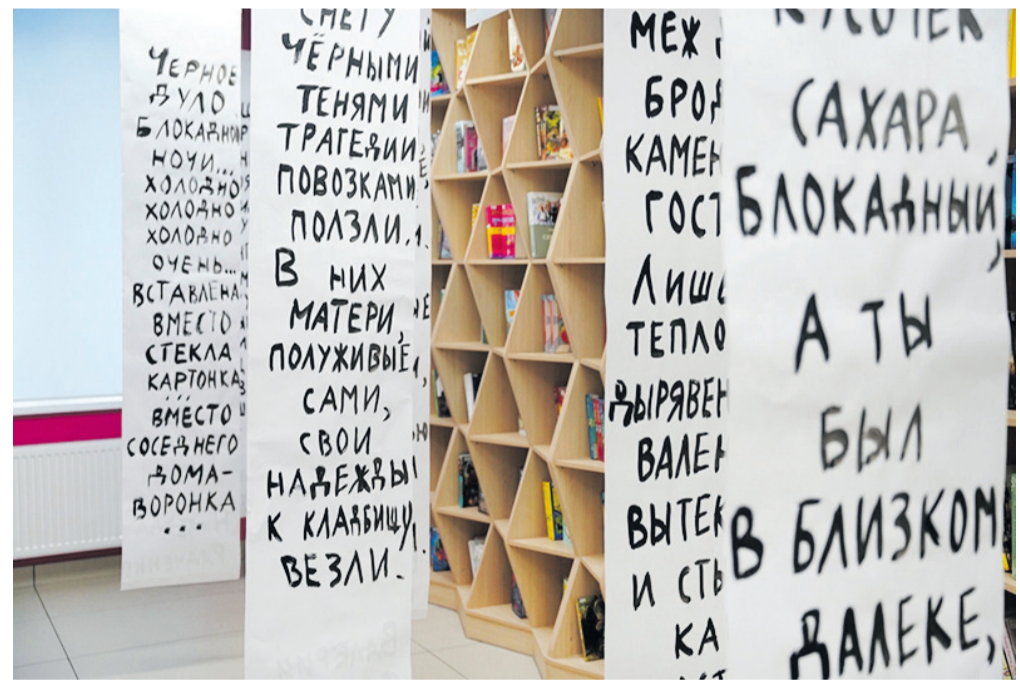 ЧЕРНОЕ
ДУЛО
БЛОКАДНОЙ
НОЧИ...
ХОЛОДНО
ХОЛОДНО
ХОЛОДНО
ОЧЕНЬ...
ВСТАВЛЕНА
ВМЕСТО
СТЕКЛА
КАРТОНКА
...
ВМЕСТО
СОСЕДНЕГО
ДОМА-
ВОРОНКА
...
СНЕГУ
ЧЁРНЫМИ
ТЕНЯМИ
ТРАГЕДИИ
ПОВОЗКАМИ
ПОЛЗЛИ.
В НИХ
МАТЕРИ,
ПОЛУЖИВЫЕ
САМИ,
СВОИ
НАДЕЖДЫ
К КЛАДБИЩУ
ВЕЗЛИ.
МЕЖ
БРОД
КАМЕН
ГОСТ
ЛИШ
ТЕПЛО
ДЫРЯВЕН
ВАЛЕН
ВЫТЕК
И СТЫ
КА
КУСОЧЕК
САХАРА
БЛОКАДНЫЙ,
А ТЫ
БЫЛ
В БЛИЗКОМ
ДАЛЕКЕ,